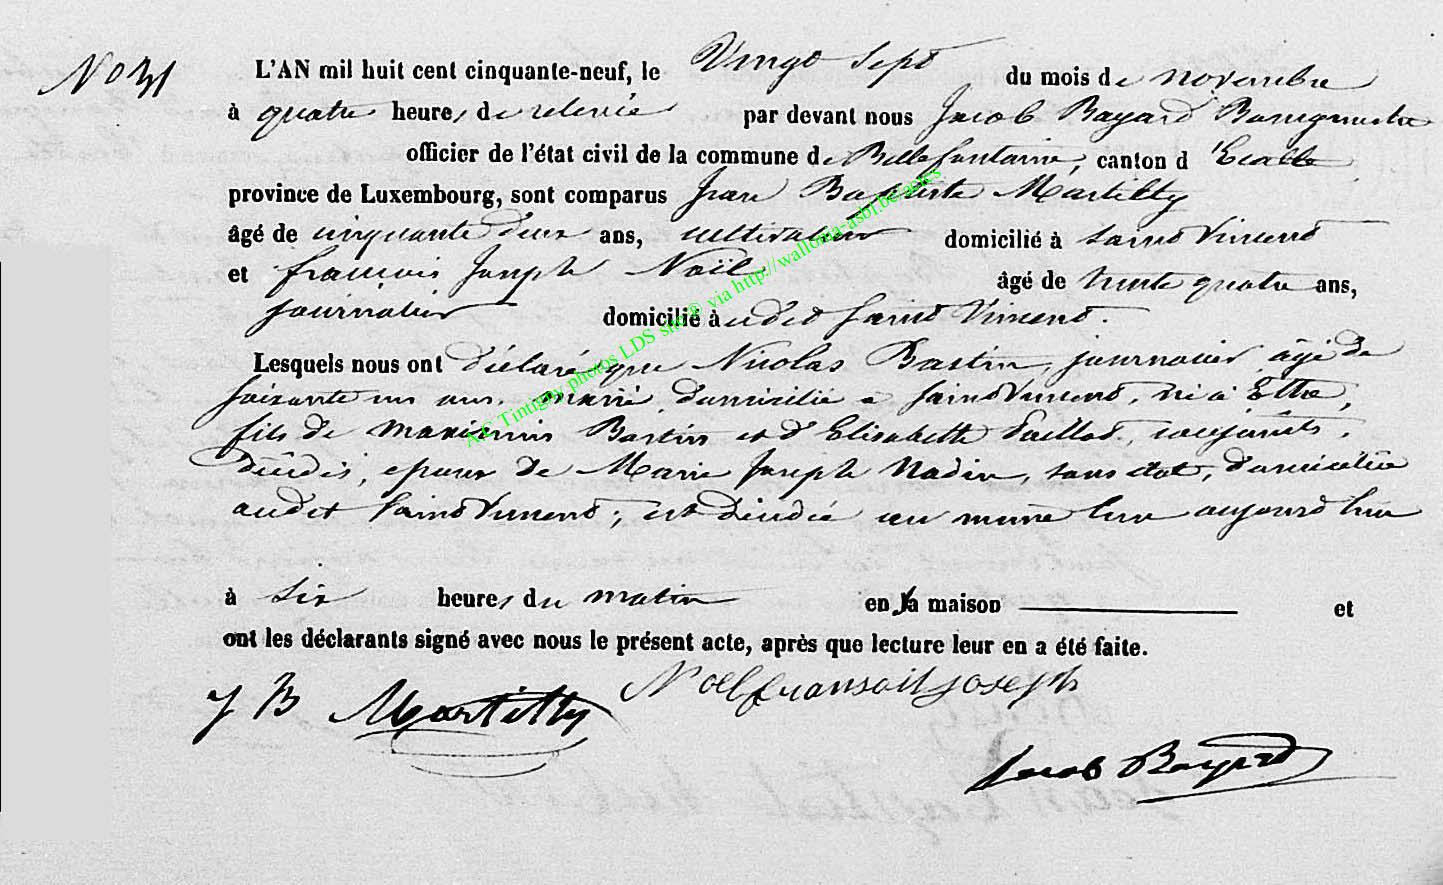 No 31
L'AN mil huit cent cinquante-neuf, le Vingt Sept du mois de novembre
à quatre heures de relevée par devant nous Jacob Bayard Bourgmestre
officier de l'état civil de la commune de Bellefontaine, canton d'Etalle
province de Luxembourg, sont comparus Jean Baptiste Martilly
âgé de cinquante deux ans, cultivateur domicilié à Saint Vincent
et françois Joseph Noël âgé de trente quatre ans,
journalier domicilié à udit Saint Vincent.
Lesquels nous ont déclaré que Nicolas Bastin, journalier, âgé de
soixante un ans, marié, domicilié a Saint Vincent, né à Ethe,
fils de Maximin Bastin et d'Elisabeth conjoints,
décédés, epoux de Marie Joseph Nadin, sans état, domiciliée
audit Saint Vincent; est décédé en même lieu aujourd'hui
à six heures du matin en sa maison et
ont les déclarants signé avec nous le présent acte, après que lecture leur en a été faite.
J B Martilly Noel fransoit joseph
Jacob Bayard
A.C Tintigny photos LDS site © via http://wallonia-asbl.be/acks